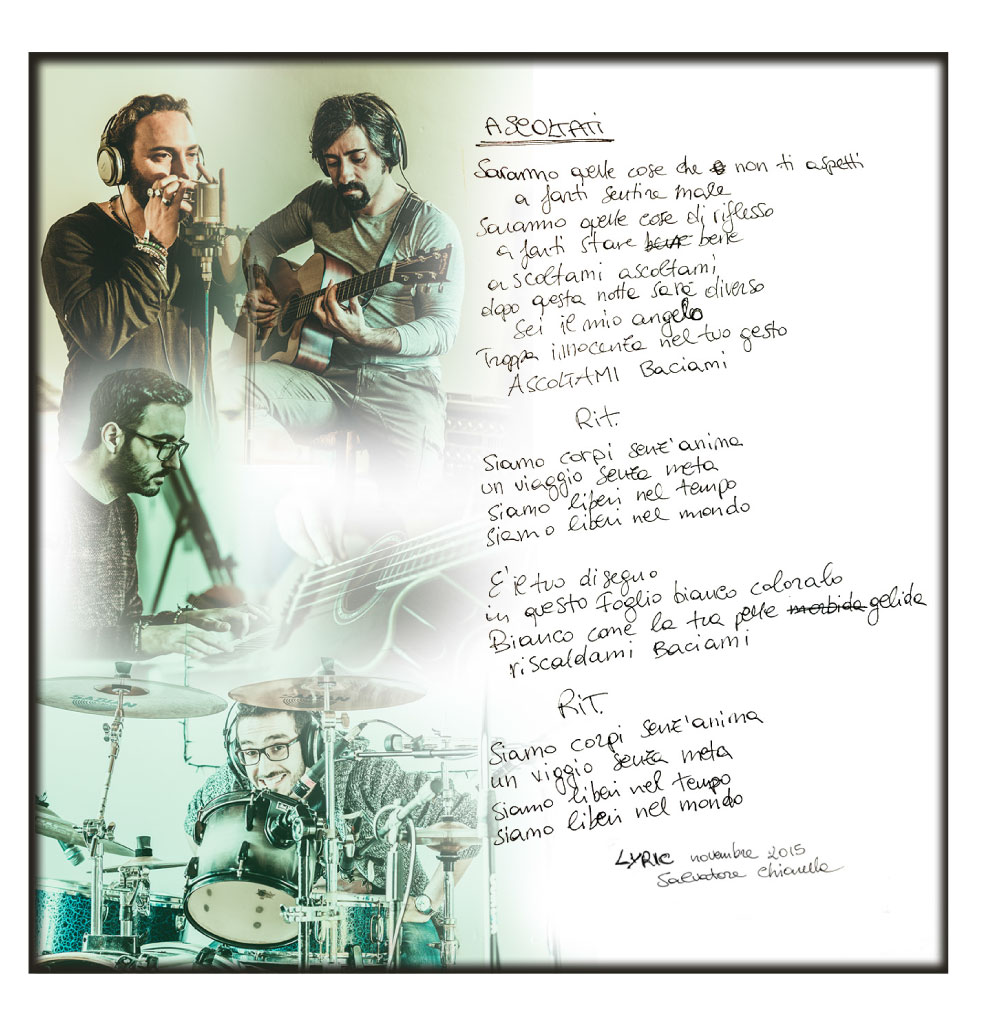 ASCOLTATI
Saranno quelle cose che non ti aspetti
a farti sentire male
Saranno quelle cose di riflesso
a farti stare bene bene
ascoltami ascoltami
dopo questa notte sarà diverso
Sei il mio angelo
Troppa innocenza nel tuo gesto
ASCOLTAMI Baciami
Rit.
Siamo corpi senz'anima
un viaggio senza meta
siamo liberi nel tempo
siamo liberi nel mondo
E' il tuo disegno
in questo foglio bianco colorato
Bianco come la tua pelle morbida gelida
riscaldami Baciami
RIT.
Siamo corpi senz'anima
un viggio senza meta
siamo liberi nel tempo
siamo liberi nel mondo
LYRIC novembre 2015
Salvatore Chianella